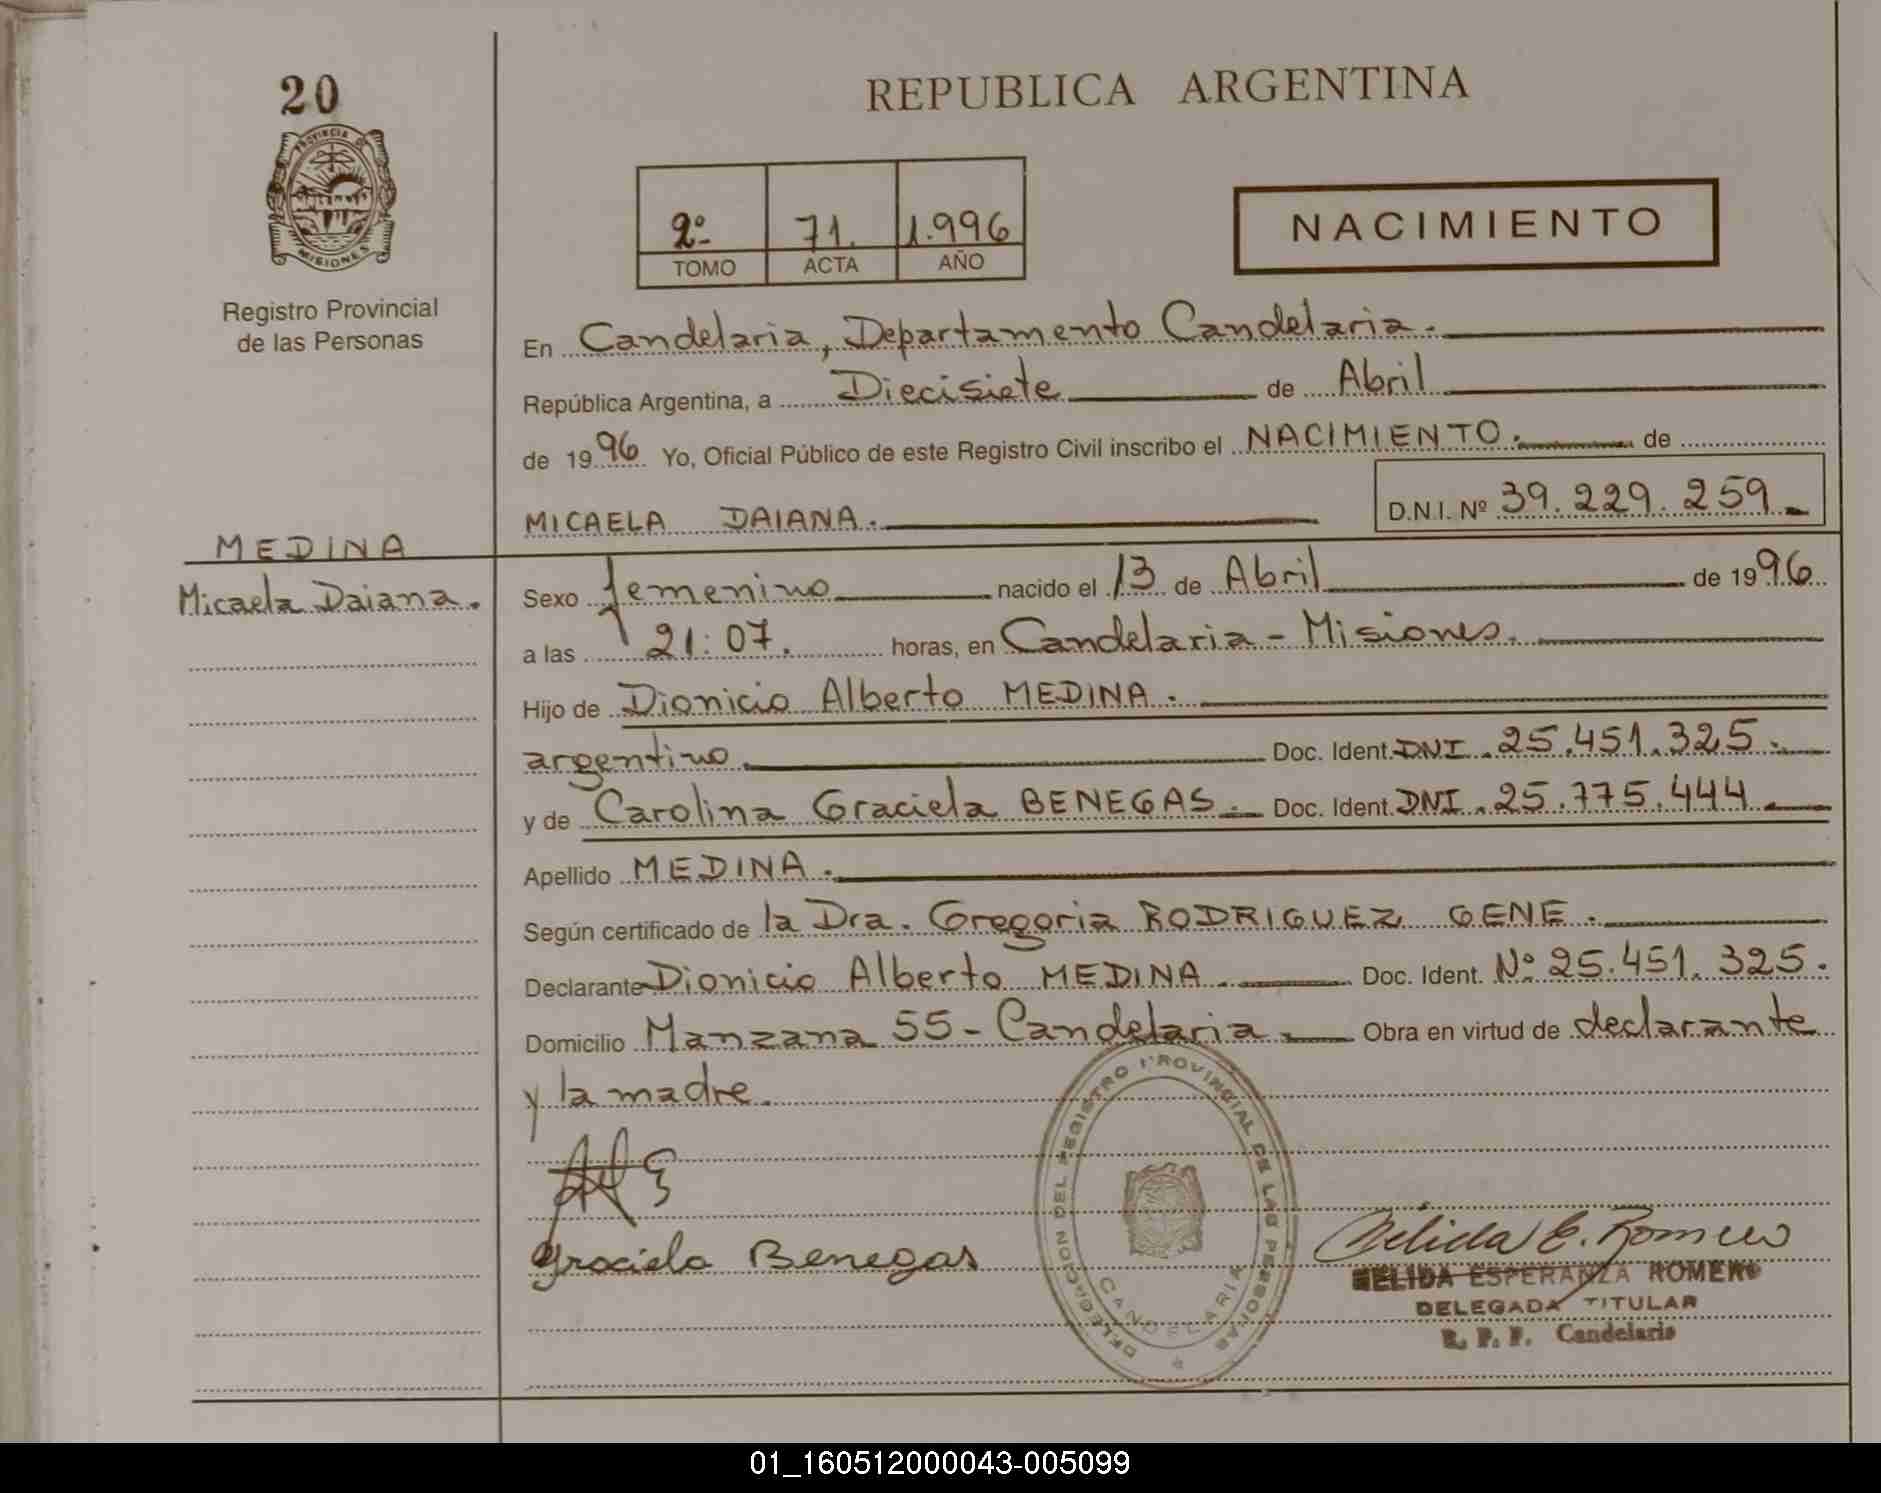 20
REPUBLICA ARGENTINA
PROVINCIA DE
MISIONES
2º 71. 1.996
TOMO ACTA AÑO
NACIMIENTO
Registro Provincial
de las Personas
En Candelaria, Departamento Candelaria.
República Argentina, a Diecisiete de Abril
de 1996 Yo, Oficial Público de este Registro Civil inscribo el NACIMIENTO. de
MICAELA DAIANA. D.N.I. Nº 39.229.259
MEDINA
Micaela Daiana.
Sexo femenino nacido el 13 de Abril de 1996
a las 21:07. horas, en Candelaria - Misiones.
Hijo de Dionicio Alberto MEDINA.
argentino. Doc. Ident. DNI. 25.451.325.
y de Carolina Graciela BENEGAS. Doc. Ident. DNI. 25.775.444
Apellido MEDINA.
Según certificado de la Dra. Gregoria RODRIGUEZ GENE.
Declarante Dionicio Alberto MEDINA. Doc. Ident. Nº 25.451.325.
Domicilio Manzana 55 - Candelaria. Obra en virtud de declarante
y la madre.
DELEGACION DEL REGISTRO PROVINCIAL DE LAS PERSONAS
CANDELARIA
Graciela Benegas
Nélida E. Romero
NELIDA ESPERANZA ROMERO
DELEGADA TITULAR
R. P. P. Candelaria
01_160512000043-005099